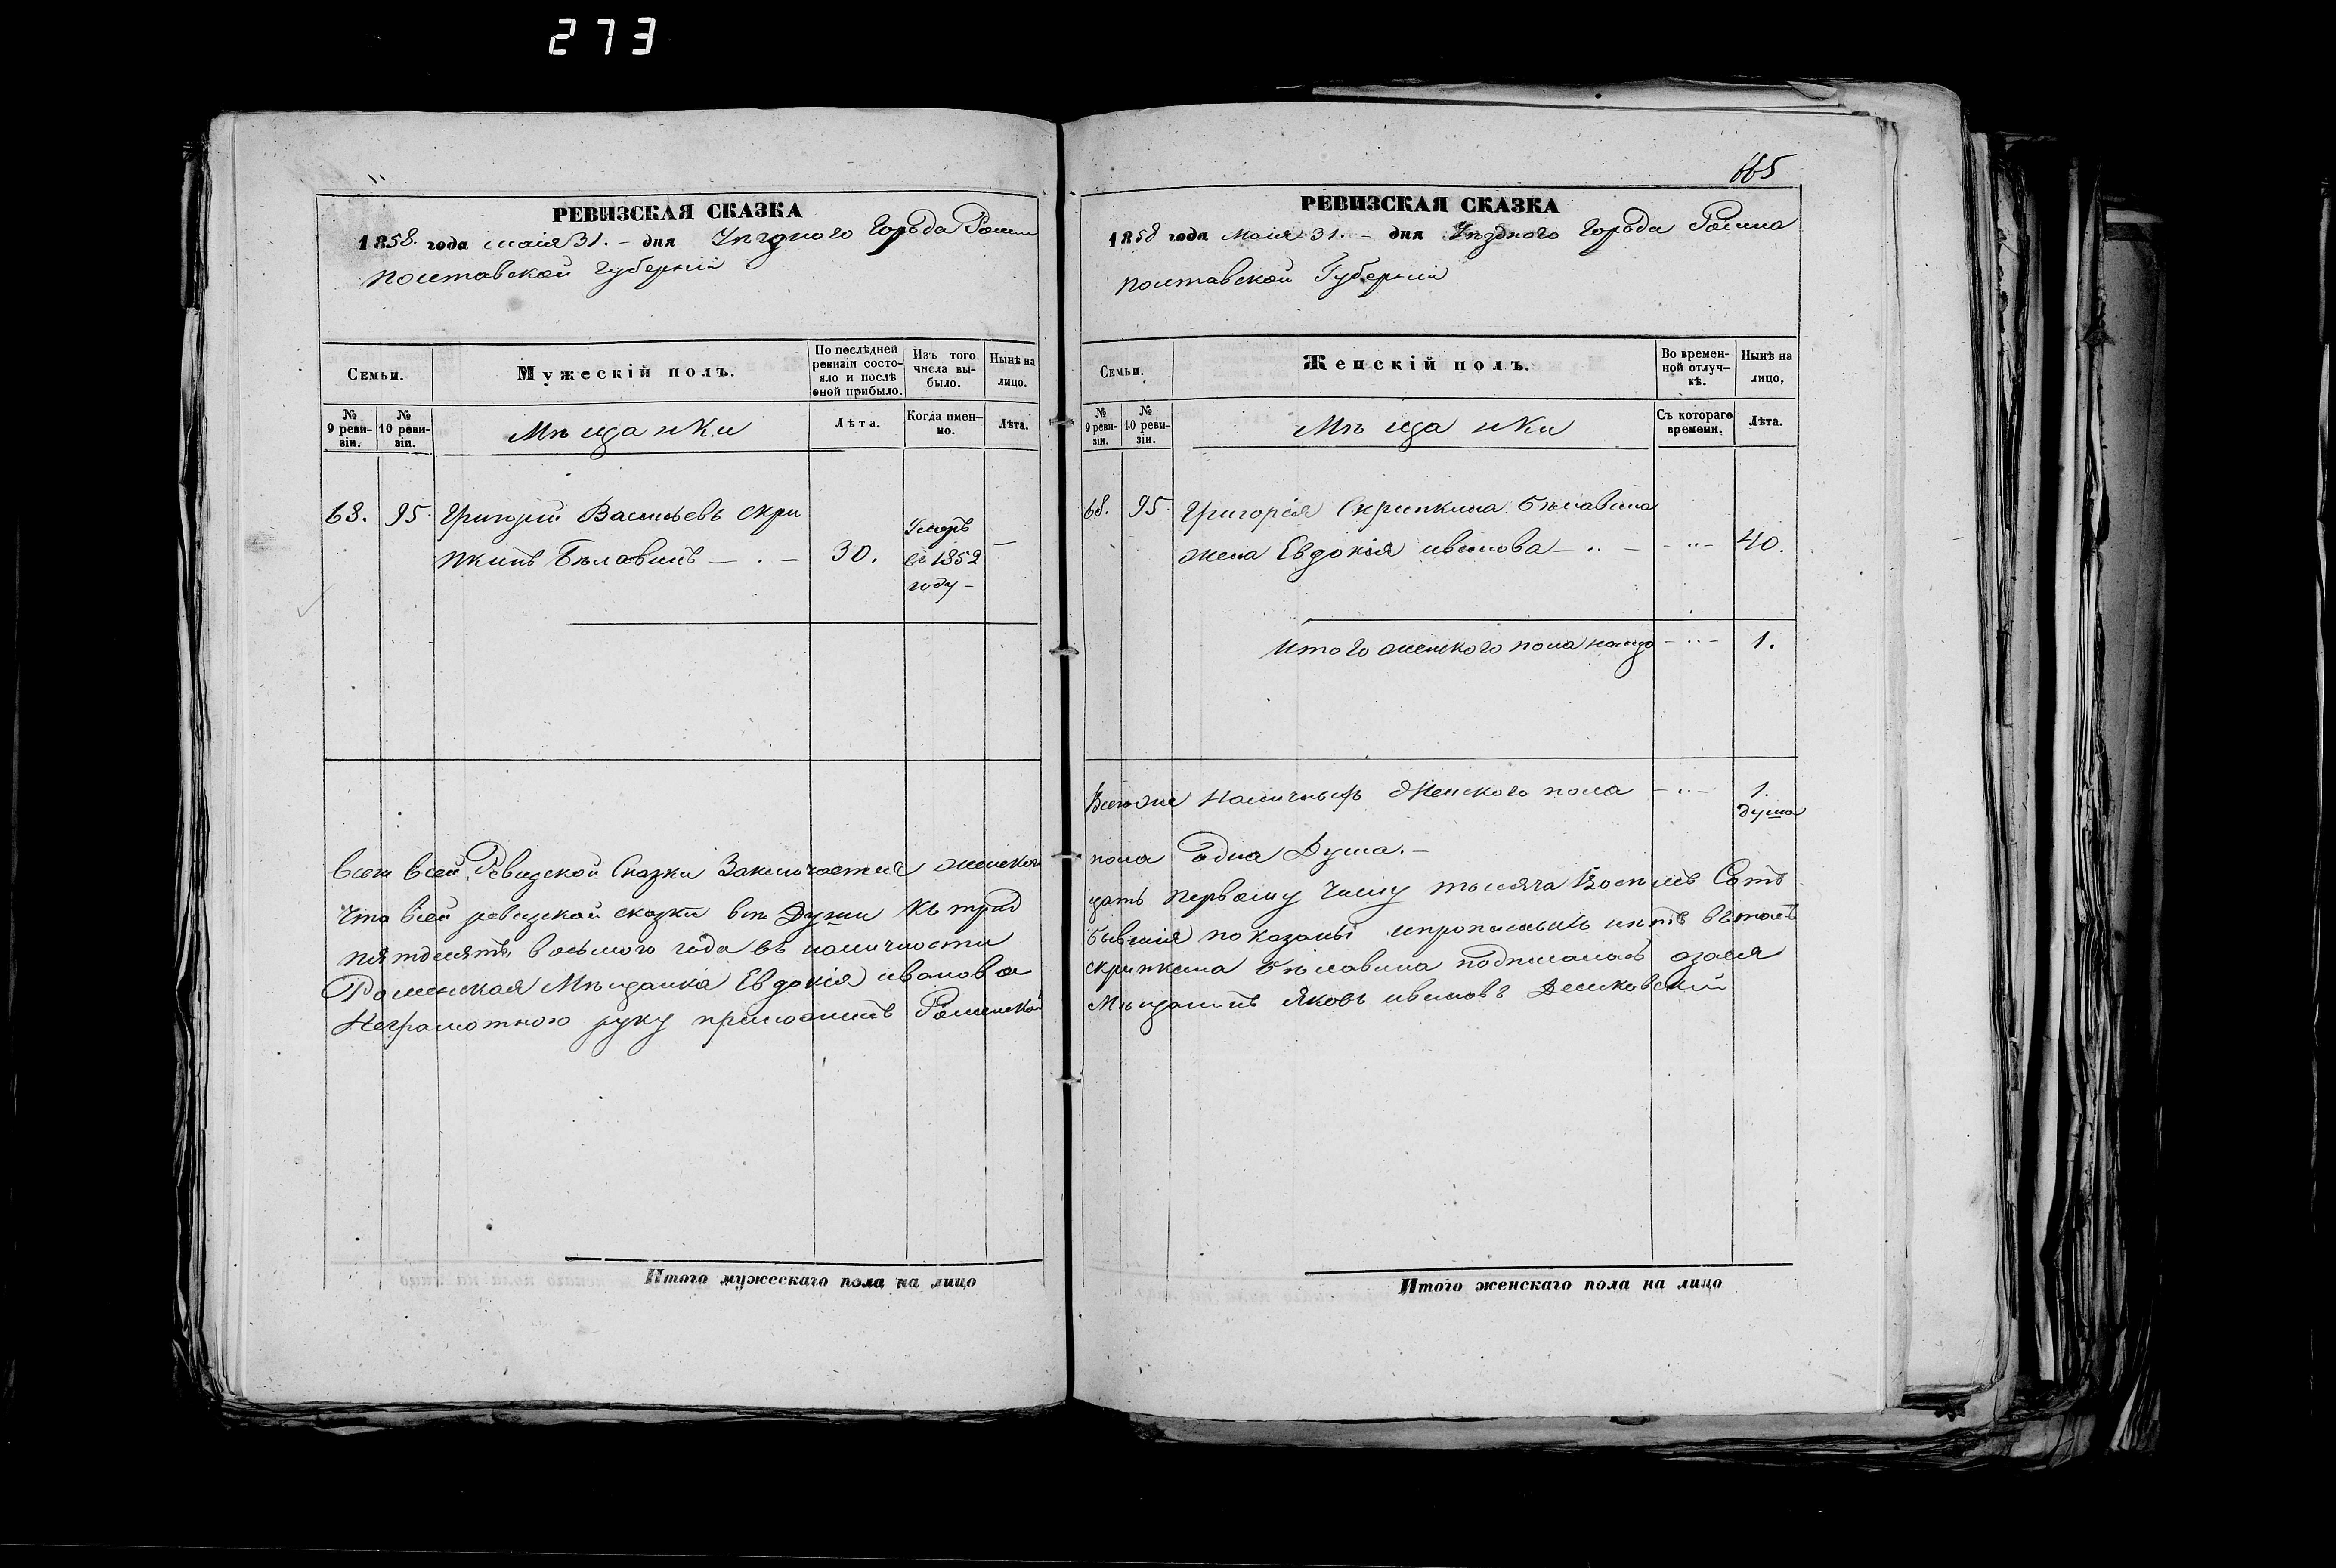 273
РЕВИЗСКАЯ СКАЗКА
1858. года маія 31. – дня Уѣзднаго Города Ромна
Полтавской Губерніи
Семьи.
Мужескій полъ.
По послѣдней ревизіи состояло и послѣ оной прибыло.
Изъ того числа выбыло.
Нынѣ на лицо.
№ 9 ревизіи.
№ 10 ревизіи.
Мѣщанки
Лѣта.
Когда именно.
Лѣта.
68. 95. Григорій Васильевъ Скри
пкинъ Бѣлавинъ – . – 30. Умеръ въ 1852 году – –
Всего въ сей Ревизской Сказки Заключается женского
Что въ сей ревизской сказки всѣ Души къ трид
пятдесятъ восьмого года въ наличности
Роменская Мѣщанка Евдокія иванова
Неграмотною руку приложилъ Роменской
Итого мужескаго пола на лицо
665
РЕВИЗСКАЯ СКАЗКА
1858 года Маія 31. – дня Уѣзднаго Города Ромна
Полтавской Губерніи
Семьи.
Женскій полъ.
Во временной отлучкѣ.
Нынѣ на лицо.
№ 9 ревизіи.
№ 10 ревизіи.
Мѣщанки
Съ котораго времени.
Лѣта.
68. 95. Григорія Скрипкина Бѣлавина
жена Евдокія иванова – .. – – .. – 40.
Итого женского пола налицо – .. – 1.
Всего же Наличныхъ Женского пола – .. – 1. душа
пола Одна Душа. –
цать первому числу тысяча Восемь Сотъ
бывшія показаны и пропыльныхъ нѣтъ въ томъ
скрипкина бѣлавина подписалась а за нея
Мѣщанинъ Яковъ ивановъ
Итого женскаго пола на лицо